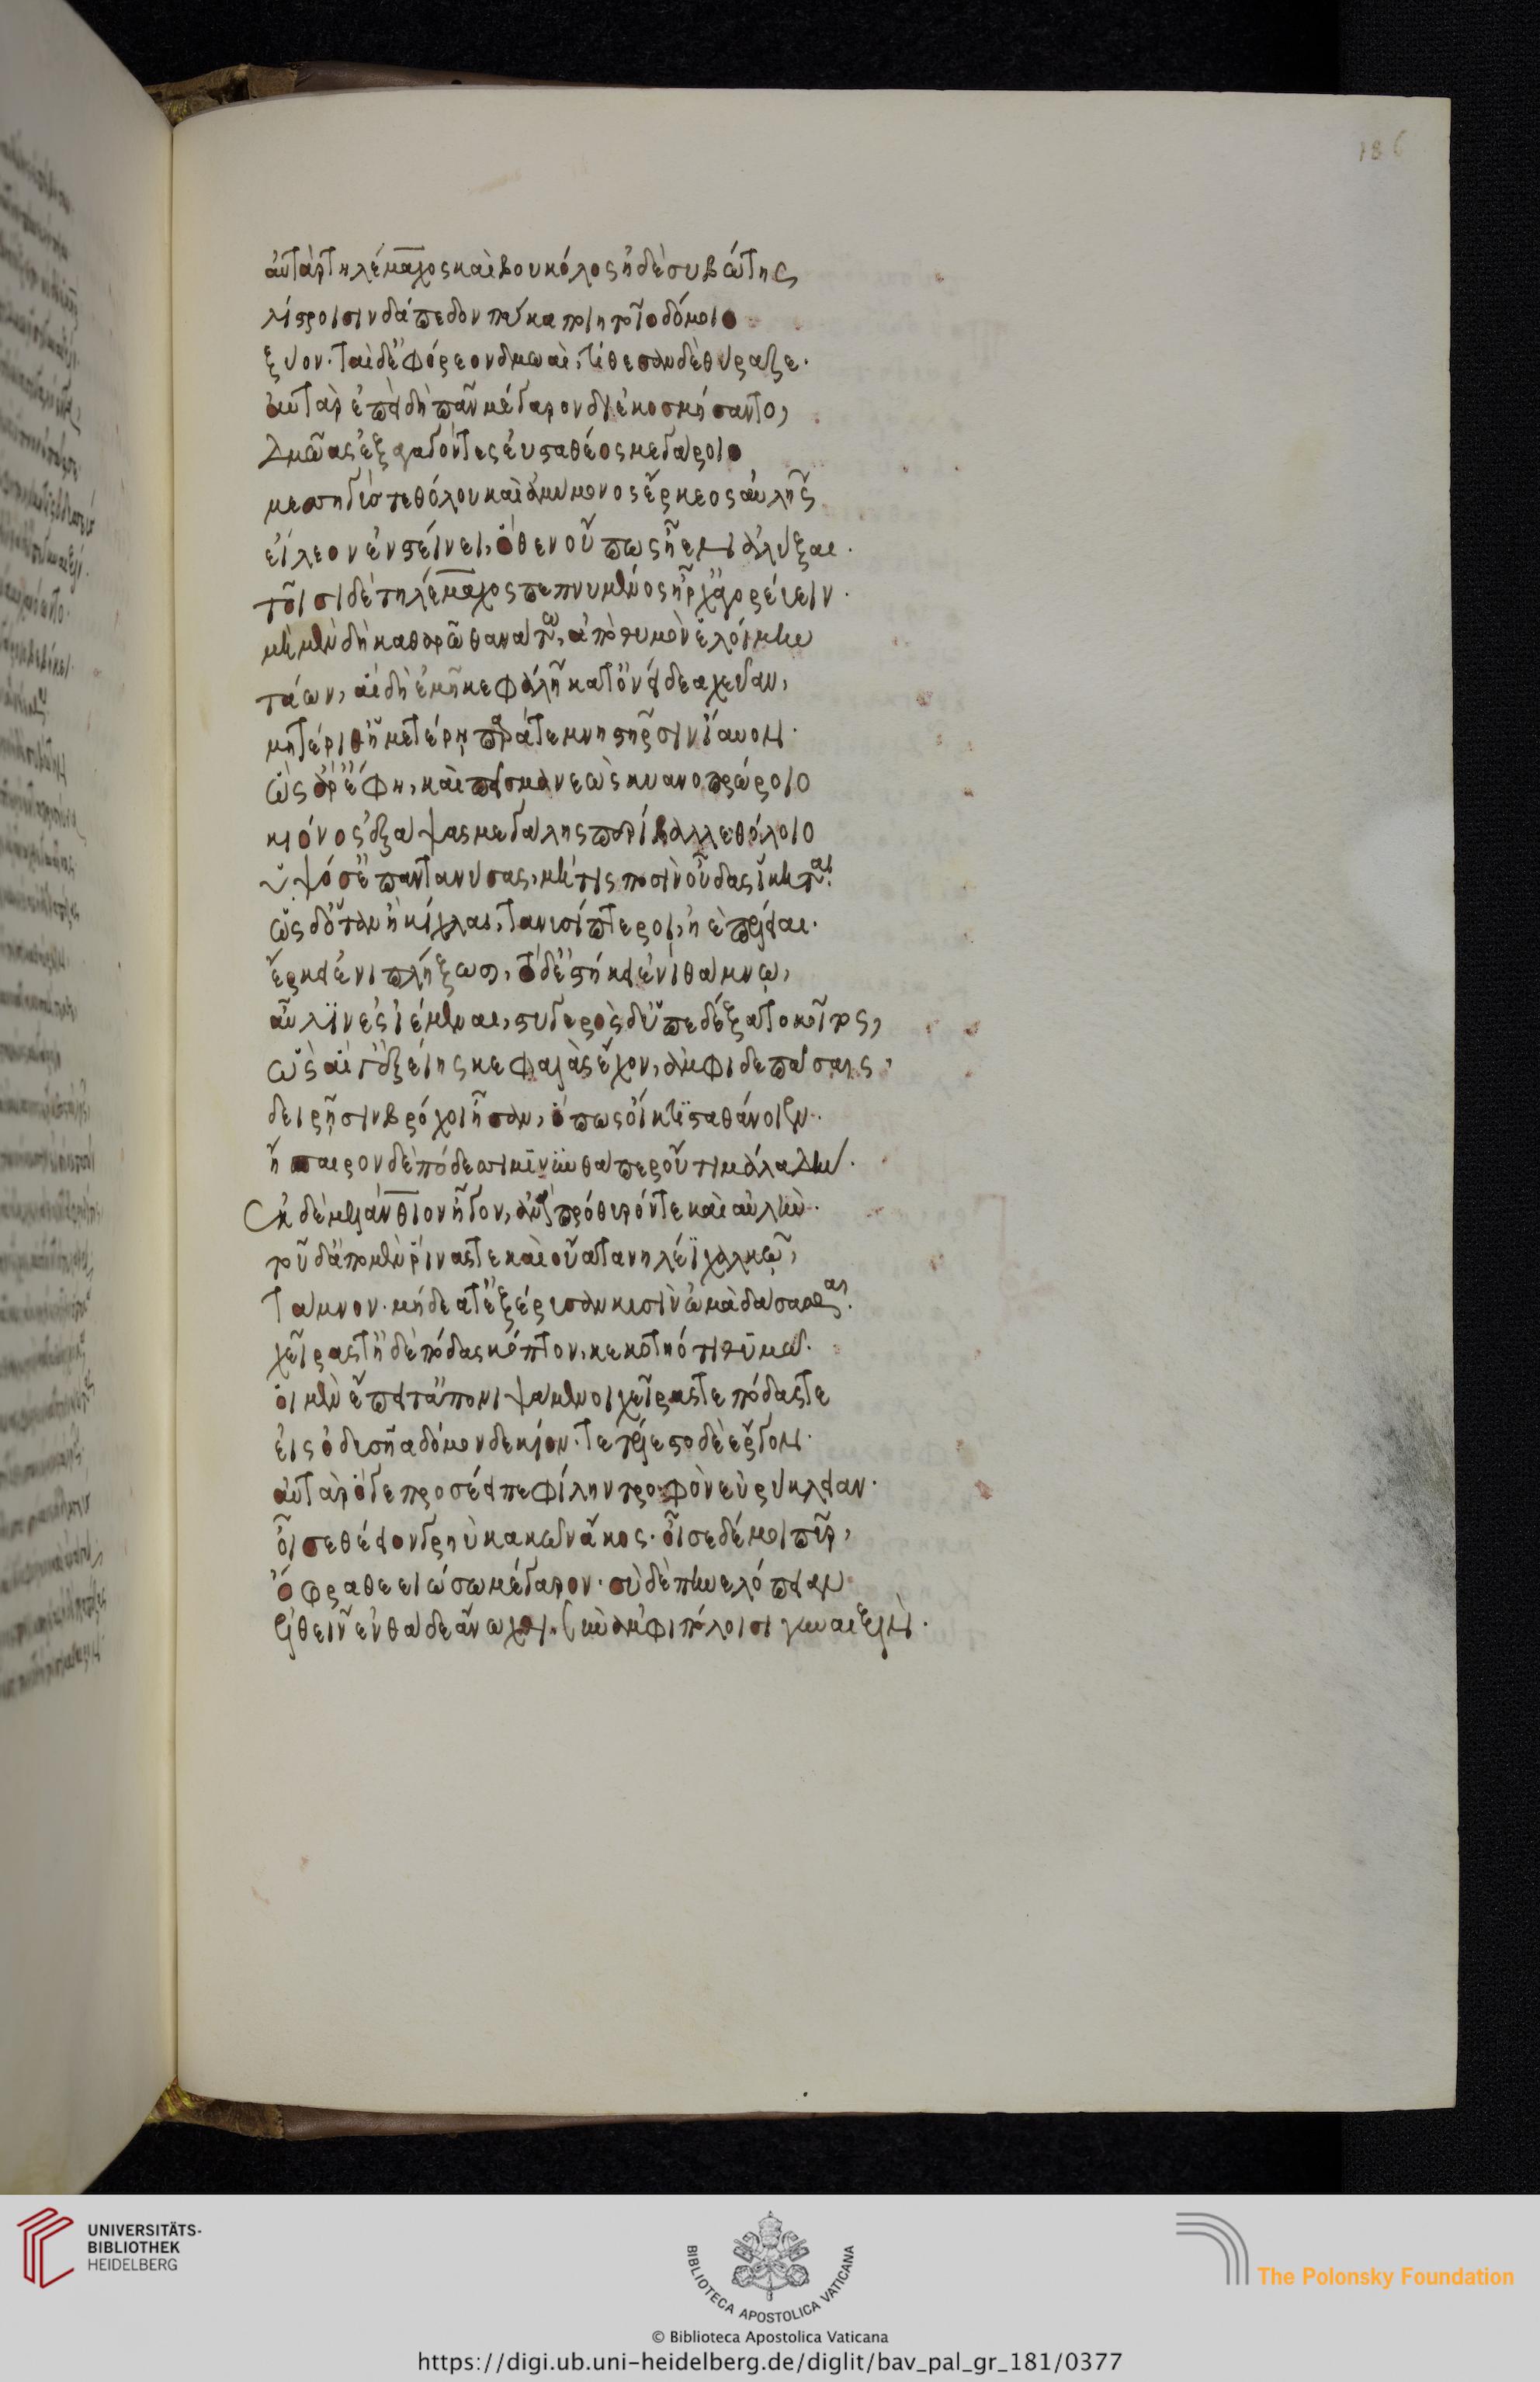 186
αὐτὰρ τηλέμαχος καὶ βουκόλος ἠδὲ συβώτης
λίστροισιν δάπεδον πύκα ποιητοῖο δόμοιο
ξύον· ταὶ δ' ἐφόρεον δμωαὶ, τίθεσαν δὲ θύραζε·
αὐτὰρ ἐπειδὴ πᾶν μέγαρον διεκοσμήσαντο,
δμωὰς ἐξαγαγόντες ἐυσταθέος μεγάροιο
μεσσηγύς τε θόλου καὶ ἀμύμονος ἕρκεος αὐλῆς
εἴλεον ἐν στείνει, ὅθεν οὔπως ἦεν ἀλύξαι·
τοῖσι δὲ τηλέμαχος πεπνυμένος ἦρχ' ἀγορεύειν·
μὴ μὲν δὴ καθαρῶ θανάτω, ἀπὸ θυμὸν ἑλοίμην
τάων, αἳ δὴ ἐμῇ κεφαλῇ κατ' ὀνείδεα χεῦαν,
μητέρι θ' ἡμετέρῃ παρά τε μνηστῆρσιν ἴαυον·
ὣς ἄρ' ἔφη, καὶ πεῖσμα νεὼς κυανοπρώροιο
κίονος ἐξάψας μεγάλης περίβαλλε θόλοιο
ὑψόσ' ἐπαντανύσας, μή τις ποσὶν οὖδας ἵκηται·
ὡς δ' ὅταν ἢ κίχλαι, τανυσίπτεροι, ἠὲ πέλειαι·
ἕρκει ἐνιπλήξωσι, τό δ' ἑστήκει ἐνὶ θάμνῳ,
αὖλιν ἐσιέμεναι, στυγερὸς δ' ὑπεδέξατο κοῖτος,
ὣς αἵ γ' ἑξείης κεφαλὰς ἔχον, ἀμφὶ δὲ πάσαις
δειρῇσιν βρόχοι ἦσαν, ὅπως οἴκτιστα θάνοιεν·
ἤσπαιρον δὲ πόδεσσι μίνυνθά περ οὔτι μάλα δήν·
ἐκ δὲ μελάνθιον ἦγον, ἀνὰ πρόθυρόν τε καὶ αὐλήν·
τοῦ δ' ἀπὸ μὲν ῥῖνάς τε καὶ οὔατα νηλέϊ χαλκῷ,
τάμνον· μήδεά τ' ἐξέρυσαν κυσὶν ὠμὰ δάσασθαι·
χεῖράς τ' ἠδὲ πόδας κόπτον, κεκοτηότι θυμῷ·
οἱ μὲν ἔπειτ' ἀπονιψάμενοι χεῖράς τε πόδας τε
εἰς ὀδυσῆα δόμονδε κίον· τετέλεστο δὲ ἔργον·
αὐτὰρ ὅγε προσέειπε φίλην τροφὸν εὐρύκλειαν·
οἶσε θέειον γρηῢ κακῶν ἄκος· οἶσε δέ μοι πῦρ,
ὄφρα θεειώσω μέγαρον· σὺ δὲ πηνελόπειαν
ἐλθεῖν ἐνθάδ' ἄνωχθι, σὺν ἀμφιπόλοισι γυναιξίν·
UNIVERSITÄTS-
BIBLIOTHEK
HEIDELBERG
BIBLIOTECA APOSTOLICA VATICANA
The Polonsky Foundation
© Biblioteca Apostolica Vaticana
https://digi.ub.uni-heidelberg.de/diglit/bav_pal_gr_181/0377